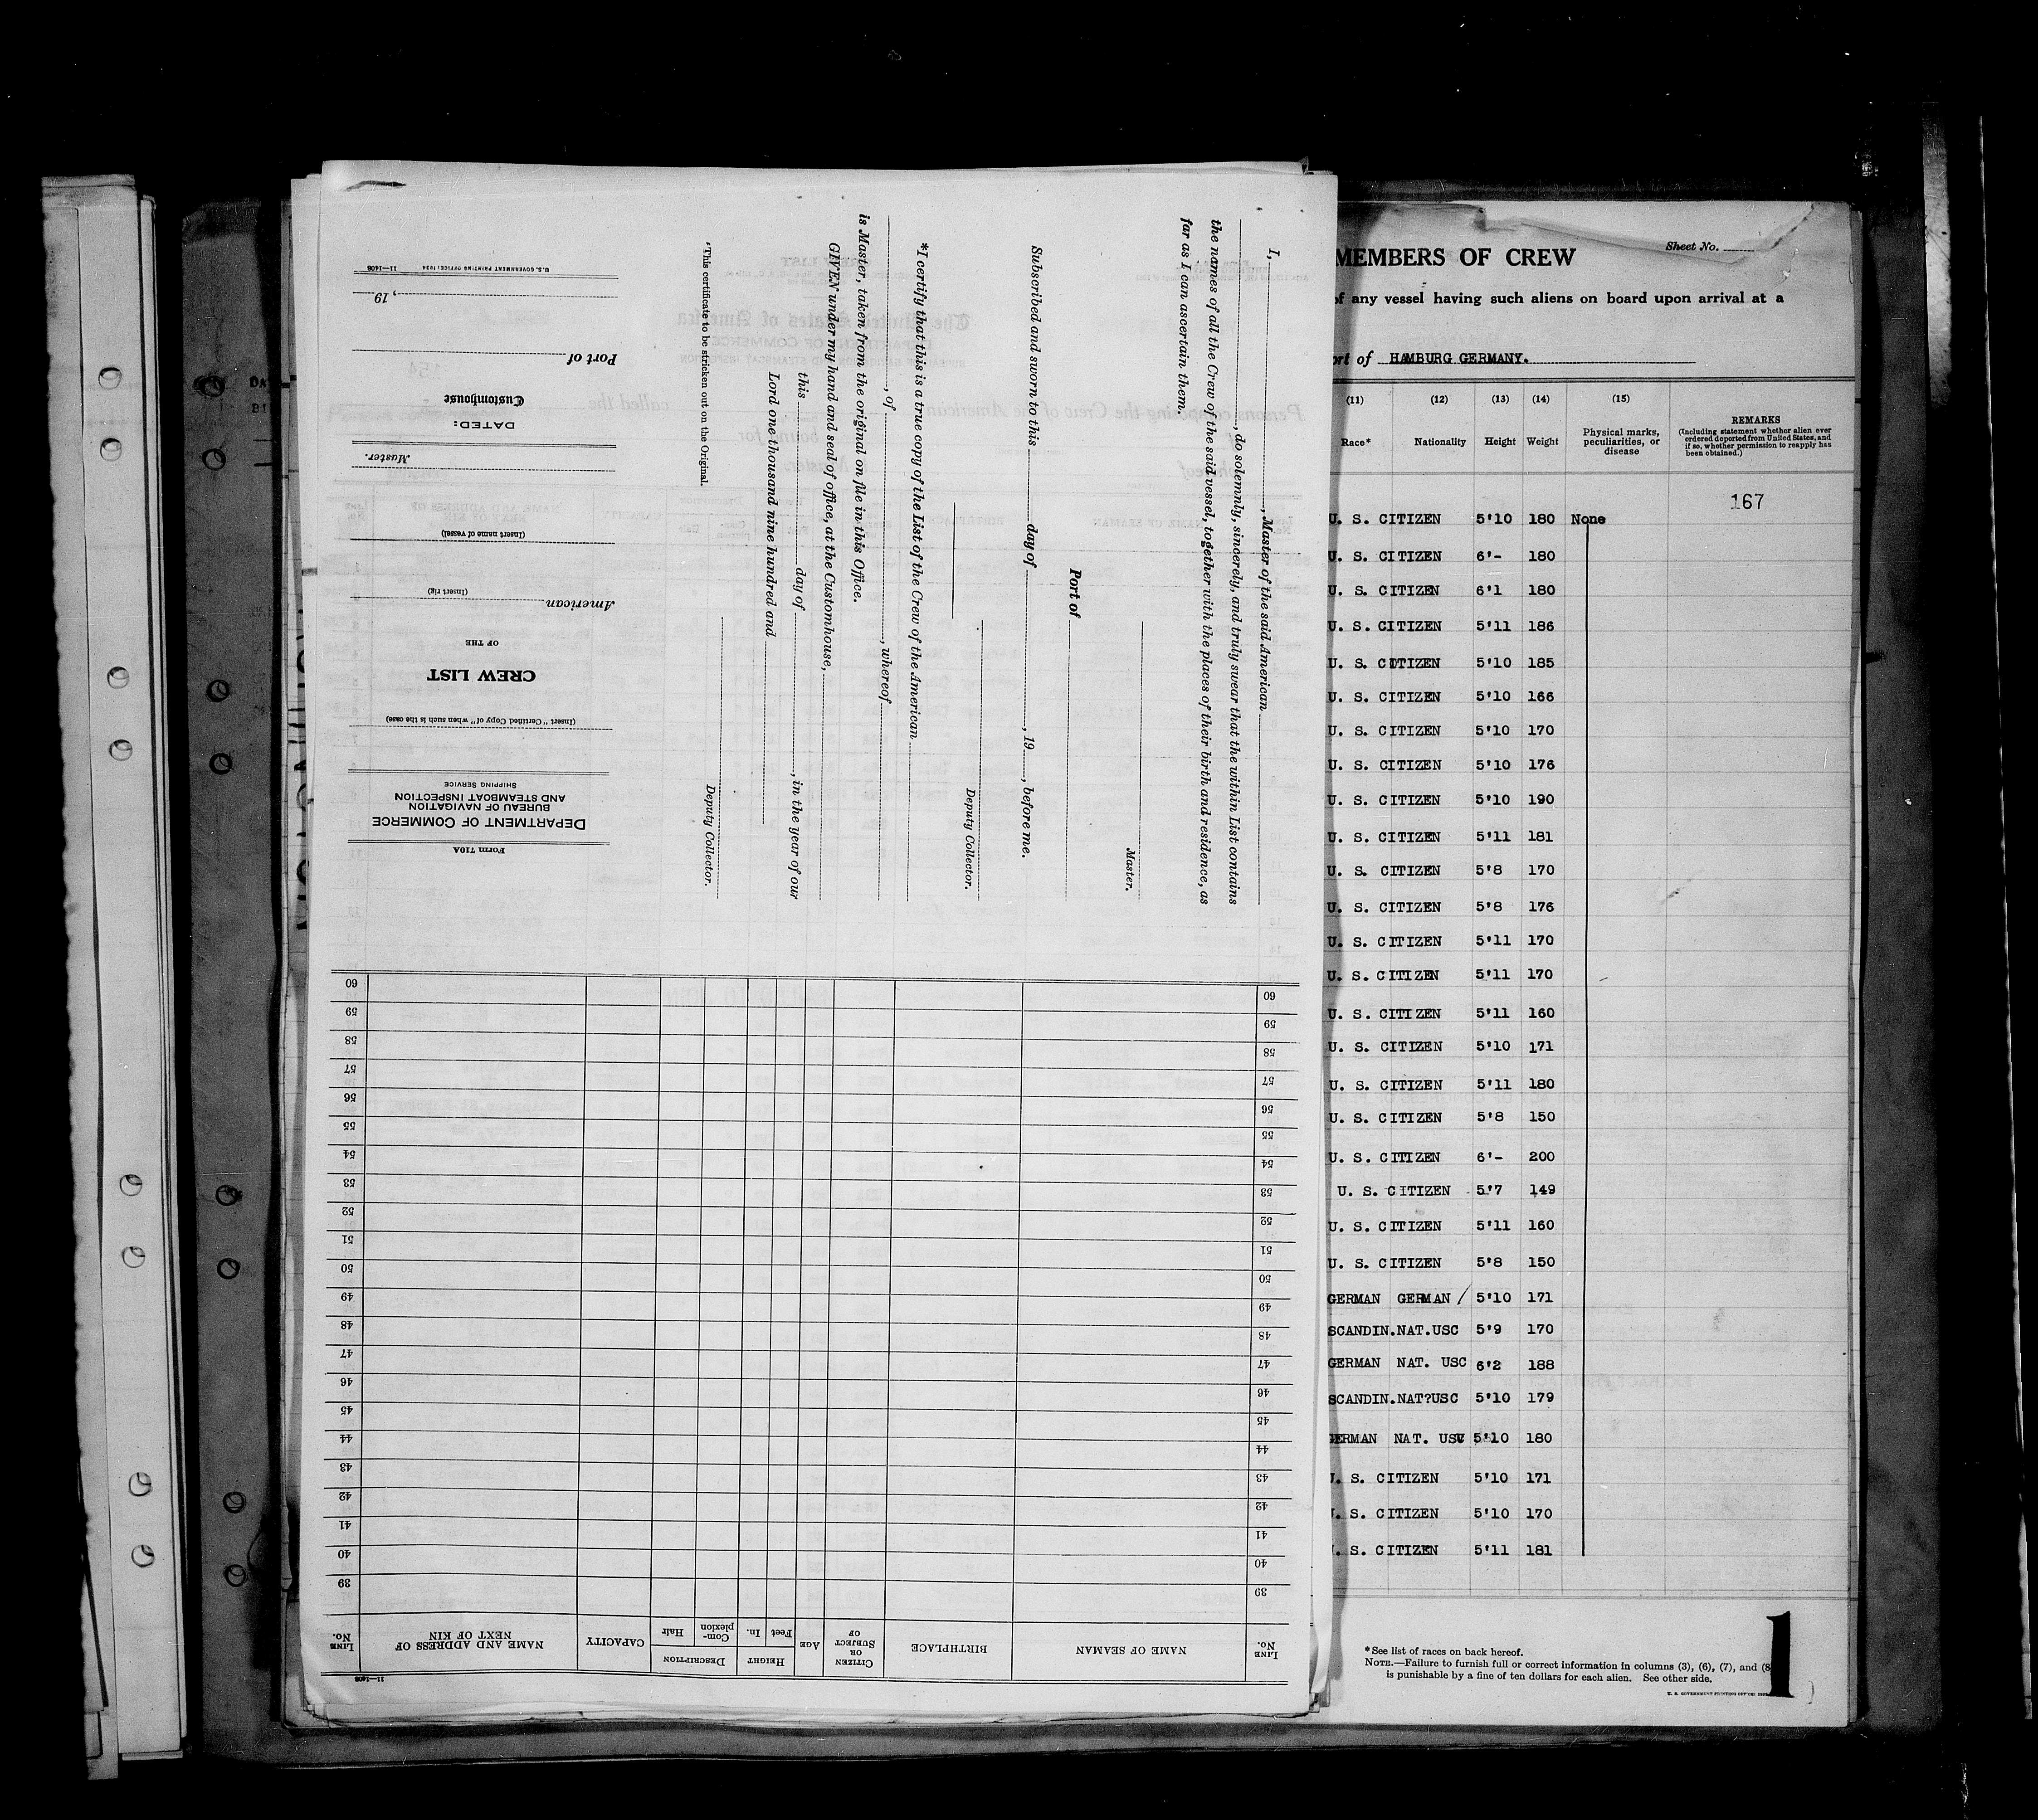 I, , Master of the said American
, do solemnly, sincerely, and truly swear that the within List contains
the names of all the Crew of the said vessel, together with the places of their birth and residence, as
far as I can ascertain them.
Master.
Port of
Subscribed and sworn to this day of , 19 , before me.
Deputy Collector.
*I certify that this is a true copy of the List of the Crew of the American
, of , whereof
is Master, taken from the original on file in this Office.
GIVEN under my hand and seal of office, at the Customhouse,
this day of , in the year of our
Lord one thousand nine hundred and
Deputy Collector.
*This certificate to be stricken out on the Original.
Form 710A
DEPARTMENT OF COMMERCE
BUREAU OF NAVIGATION
AND STEAMBOAT INSPECTION
SHIPPING SERVICE
(Insert "Certified Copy of" when such is the case)
CREW LIST
OF THE
American
(Insert rig)
(Insert name of vessel)
Master.
DATED:
Customhouse
Port of
, 19
U.S. GOVERNMENT PRINTING OFFICE: 1934 11—1408
11—1408
LINE No. NAME OF SEAMAN BIRTHPLACE CITIZEN OR SUBJECT OF AGE HEIGHT Feet In. DESCRIPTION Complexion Hair CAPACITY NAME AND ADDRESS OF NEXT OF KIN LINE No.
39 39
40 40
41 41
42 42
43 43
44 44
45 45
46 46
47 47
48 48
49 49
50 50
51 51
52 52
53 53
54 54
55 55
56 56
57 57
58 58
59 59
60 60
Sheet No.
MEMBERS OF CREW
of any vessel having such aliens on board upon arrival at a
ort of HAMBURG GERMANY.
(11) (12) (13) (14) (15)
Race* Nationality Height Weight Physical marks, peculiarities, or disease REMARKS
(Including statement whether alien ever ordered deported from United States, and if so, whether permission to reapply has been obtained.)
167
U. S. CITIZEN 5'10 180 None
U. S. CITIZEN 6'- 180
U. S. CITIZEN 6'1 180
U. S. CITIZEN 5'11 186
U. S. CITIZEN 5'10 185
U. S. CITIZEN 5'10 166
U. S. CITIZEN 5'10 170
U. S. CITIZEN 5'10 176
U. S. CITIZEN 5'10 190
U. S. CITIZEN 5'11 181
U. S. CITIZEN 5'8 170
U. S. CITIZEN 5'8 176
U. S. CITIZEN 5'11 170
U. S. CITIZEN 5'11 170
U. S. CITIZEN 5'11 160
U. S. CITIZEN 5'10 171
U. S. CITIZEN 5'11 180
U. S. CITIZEN 5'8 150
U. S. CITIZEN 6'- 200
U. S. CITIZEN 5'7 149
U. S. CITIZEN 5'11 160
U. S. CITIZEN 5'8 150
GERMAN GERMAN / 5'10 171
SCANDIN.NAT.USC 5'9 170
GERMAN NAT. USC 6'2 188
SCANDIN.NAT?USC 5'10 179
GERMAN NAT. USC 5'10 180
U. S. CITIZEN 5'10 171
. S. CITIZEN 5'10 170
. S. CITIZEN 5'11 181
1
*See list of races on back hereof.
NOTE.—Failure to furnish full or correct information in columns (3), (6), (7), and (8
is punishable by a fine of ten dollars for each alien. See other side.